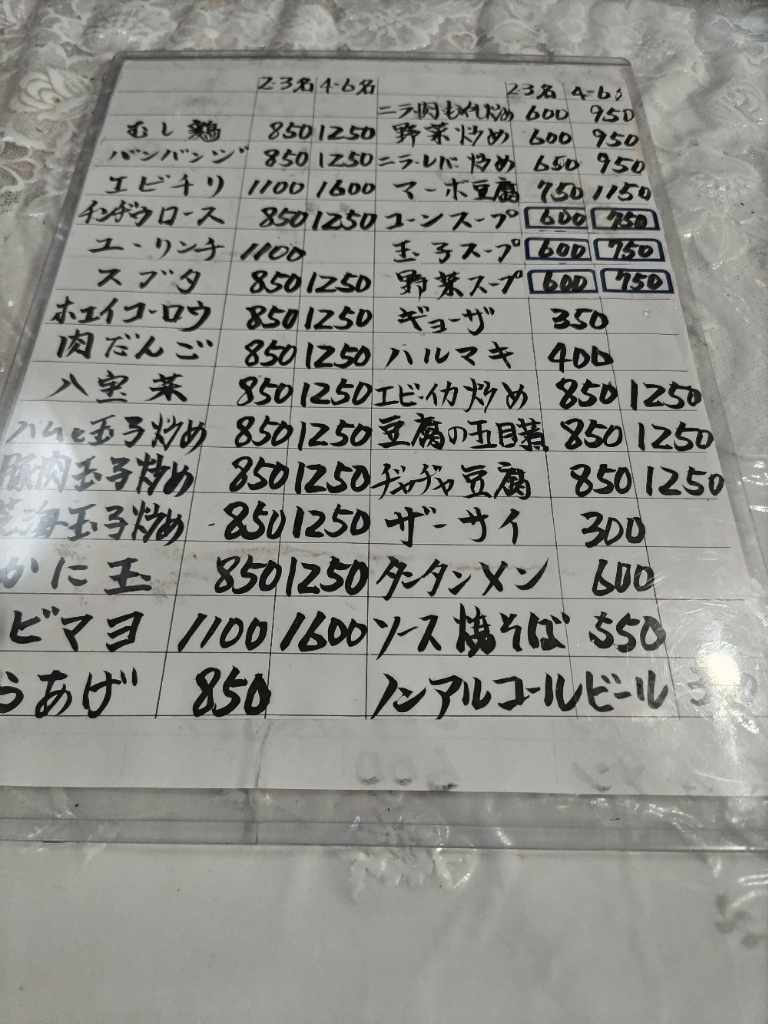 2-3名 4-6名
むし鶏 850 1250
バンバンジ 850 1250
エビチリ 1100 1600
チンヂウロース 850 1250
ユーリンチ 1100
スブタ 850 1250
ホエイコーロウ 850 1250
肉だんご 850 1250
八宝菜 850 1250
ハムと玉子炒め 850 1250
豚肉玉子炒め 850 1250
玉子炒め 850 1250
かに玉 850 1250
ビマヨ 1100 1600
らあげ 850
2-3名 4-6
ニラ肉もやし炒め 600 950
野菜炒め 600 950
ニラ・レバ炒め 650 950
マーボ豆腐 750 1150
コーンスープ 600 750
玉子スープ 600 750
野菜スープ 600 750
ギョーザ 350
ハルマキ 400
エビ・イカ炒め 850 1250
豆腐の五目煮 850 1250
ヂャヂャ豆腐 850 1250
ザーサイ 300
タンタンメン 600
ソース焼そば 550
ノンアルコールビール